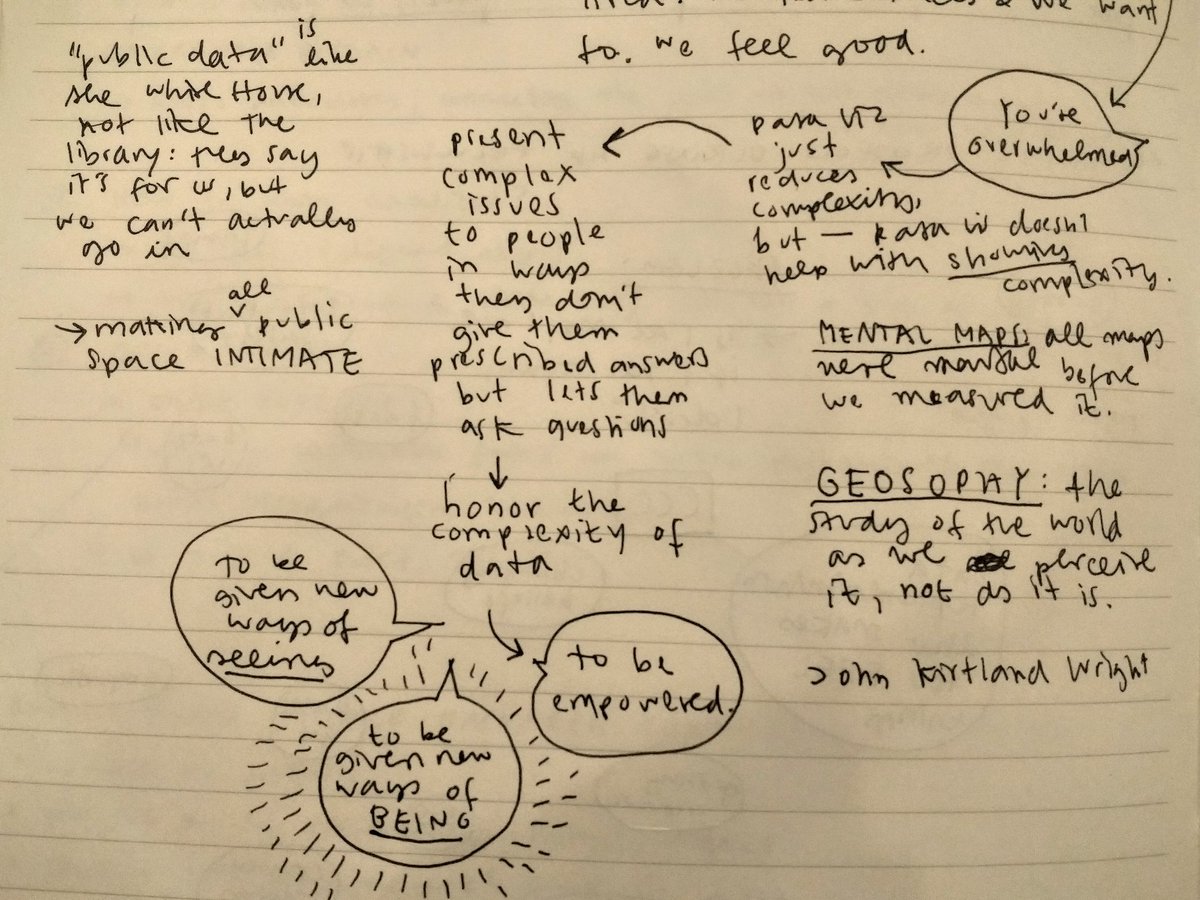 & we want
to. we feel good.
"public data" is like
the White House,
not like the
library: they say
it's for us, but
we can't actually
go in
→ making all public
space INTIMATE
You're
overwhelmed
data viz
just
reduces
complexity,
but — data viz doesn't
help with showing
complexity.
present
complex
issues
to people
in ways
they don't
give them
prescribed answers
but lets them
ask questions
↓
honor the
complexity of
data
to be
empowered.
to be
given new
ways of
seeing
to be
given new
ways of
BEING
MENTAL MAPS: all maps
were before
we measured it.
GEOSOPHY: the
study of the world
as we perceive
it, not as it is.
John Kirtland Wright